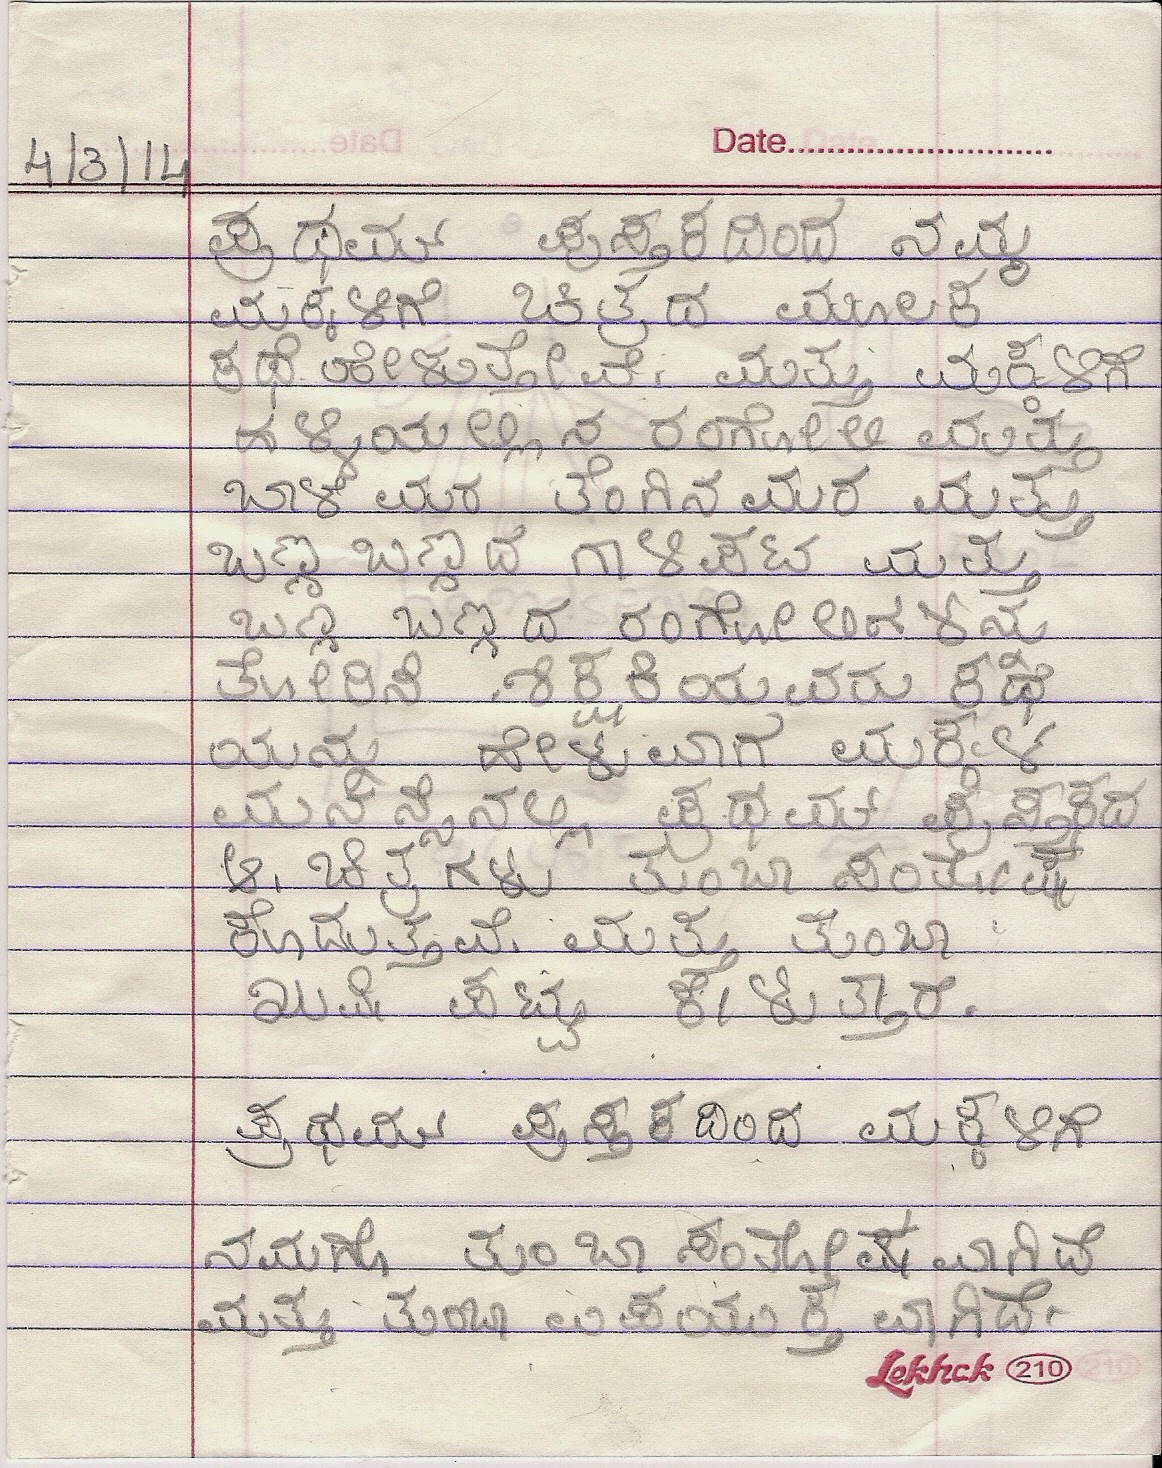 Date
4/3/14
ಪ್ರಥಮ್ ಪುಸ್ತಕದಿಂದ ನಮ್ಮ
ಮಕ್ಕಳಿಗೆ ಚಿತ್ರದ ಮೂಲಕ
ಕಥೆ ಹೇಳುತ್ತೇವೆ. ಮತ್ತು ಮಕ್ಕಳಿಗೆ
ಹಳ್ಳಿಯಲ್ಲಿನ ರಂಗೋಲಿ ಮತ್ತು
ಬಾಳೆ ಮರ ತೆಂಗಿನ ಮರ ಮತ್ತು
ಬಣ್ಣ ಬಣ್ಣದ ಗಾಳಿಪಟ ಮತ್ತು
ಬಣ್ಣ ಬಣ್ಣದ ರಂಗೋಲಿಗಳನ್ನು
ತೋರಿಸಿ ಶಿಕ್ಷಕಿಯವರು ಕಥೆ
ಯನ್ನು ಹೇಳುವಾಗ ಮಕ್ಕಳ
ಮನಸ್ಸಿನಲ್ಲಿ ಪ್ರಥಮ್ ಪುಸ್ತಕದ
ಆ. ಚಿತ್ರಗಳು ತುಂಬಾ ಸಂತೋಷ
ಕೊಡುತ್ತವೆ. ಮತ್ತು ತುಂಬಾ
ಖುಷಿ ಪಟ್ಟು ಕೇಳುತ್ತಾರೆ.
ಪ್ರಥಮ್ ಪುಸ್ತಕದಿಂದ ಮಕ್ಕಳಿಗೆ
ನಮಗೂ ತುಂಬಾ ಸಂತೋಷವಾಗಿದೆ
ಮತ್ತು ತುಂಬಾ ಉಪಯುಕ್ತವಾಗಿದೆ.
Lekhck 210